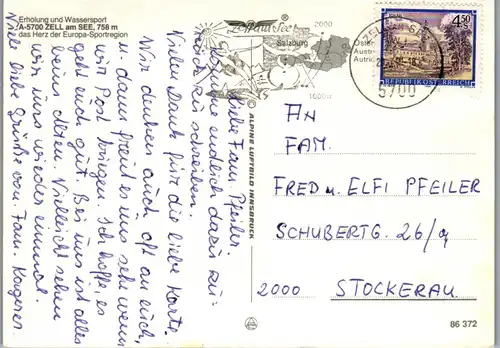 Erholung und Wassersport
A-5700 ZELL am SEE, 758 m
das Herz der Europa-Sportregion
Zell am See
2000
Salzburg
Öster-
Austri
Autric
1000
5700
4.50
REPUBLIK ÖSTERREICH
© ALPINE LUFTBILD INNSBRUCK
Liebe Fam. Pfeiler.
Komme endlich dazu zu-
rück zu schreiben.
Vielen Dank für die liebe Karte.
Wir denken auch oft an euch,
u. dann freut es uns sehr wenn
wir Post kriegen. Ich hoffe es
geht euch gut. Bei uns ist alles
beim alten. Vielleicht sehen
wir uns wieder einmal.
Viele liebe Grüße von Fam.
AN
FAM.
FRED u. ELFI PFEILER
SCHUBERTG. 26/9
2000 STOCKERAU
86 372